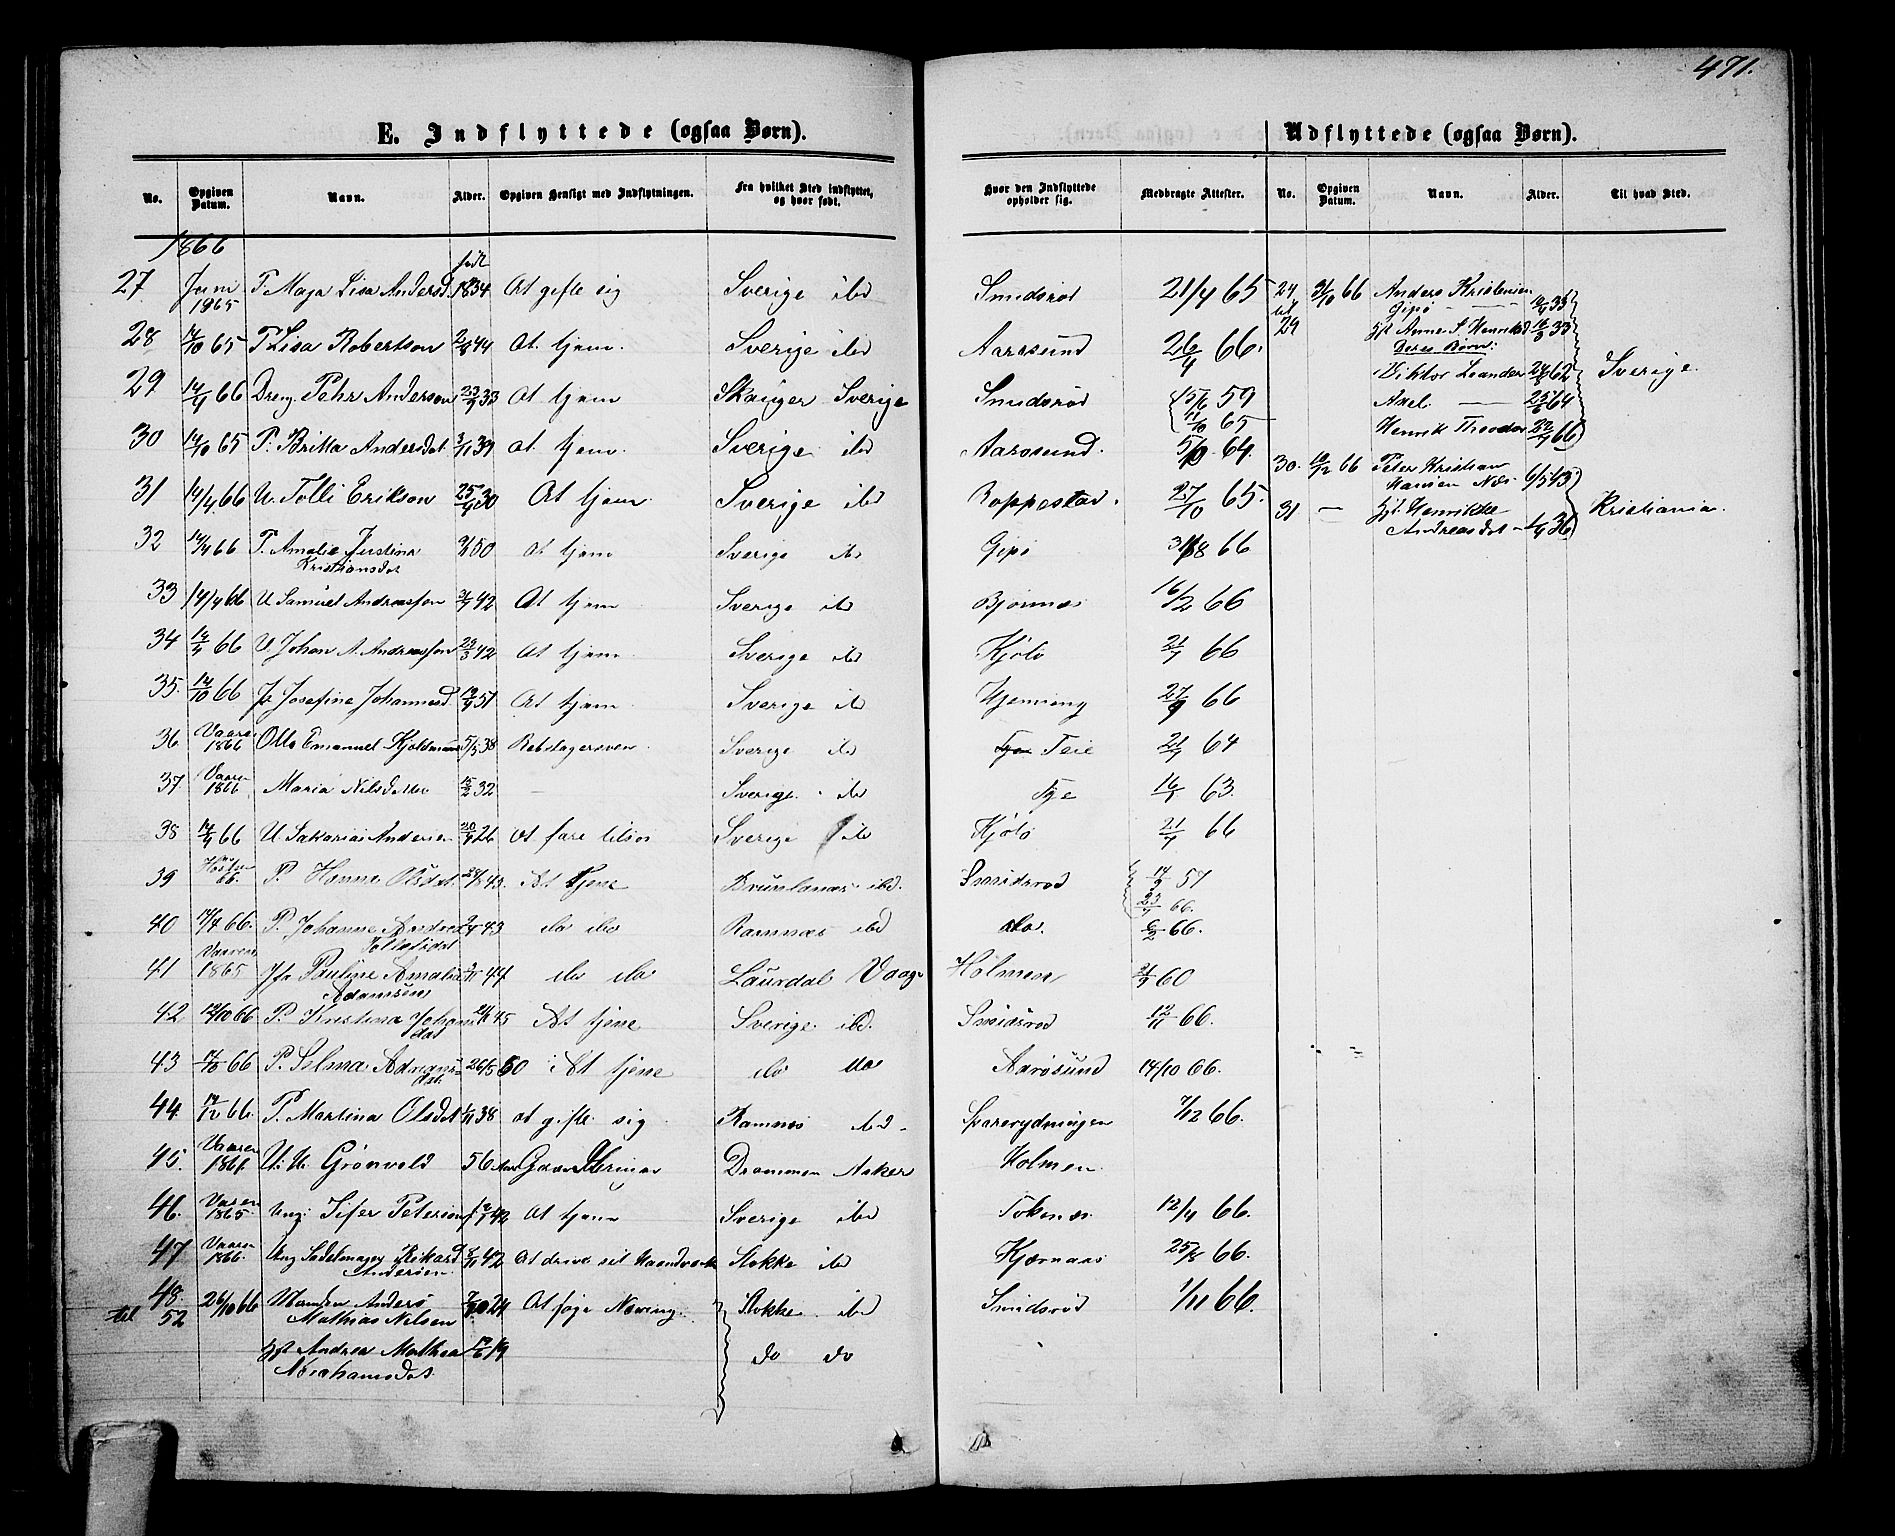 471.
E. Indflyttede (ogsaa Børn).
Udflyttede (ogsaa Børn).
No. Opgiven Datum. Navn. Alder. Opgiven Hensigt med Indflytningen. Fra hvilket Sted indflyttet, og hvor født. Hvor den Indflyttede opholder sig. Medbragte Attester.
No. Opgiven Datum. Navn. Alder. Til hvad Sted.
1866
27 Juni 1865 P. Maja Lisa Andersd. født 1834 At gifte sig Sverige ibd Smidsrød 21/4 65
28 14/10 65 P. Lisa Robertson 44 At tjene Sverige ibd Aarøsund 26/4 66.
29 14/4 66 Dreng. Pehr Anderson 23/9 33 At tjene Skanger Sverige Smidsrød 15/6 59
11/10 65
30 14/10 65 P. Britta Andersdat. 3/11 39 At tjene Sverige ibd Aarøsund. 5/10 64.
31 14/4 66 U. Tolli Erikson 25/4 30 At tjene Sverige ibd Roppestad. 27/10 65.
32 14/4 66 P. Amalie Justina Kristiansdat 50 At tjene Sverige ibd Gipø 66
33 14/4 66 U Samuel Andreasson 42 At tjene Sverige ibd Bjørnnes 16/2 66
34 14/4 66 U. Johan A. Andreasson 29/3 42 At tjene Sverige ibd Kjølø 21/4 66
35. 14/10 66 Josefine Johannesd. 51 At tjene Sverige ibd Hjemseng 27/9 66
36 Vaaren 1866 Otto Emanuel Kjoldmann 5/5 38 Rebslagersven Sverige ibd Teie 21/4 64
37 Vaaren 1866 Maria Nilsdatter 15/2 32 — Sverige ibd 63.
38 14/4 66 U Sakarias Andersen 20/9 26 at fare tilsøs Sverige ibd Kjølø 21/4 66
39 Høsten 66. P. Hanne Olsdat. 43. At tjene Brunlanes ibd. Smidsrød 57
23/4 66.
40 14/4 66. P. Johanne Andrea Tollefsdat 43 do do Ramnæs ibd do. 6/2 66.
41 Vaaren 1865 Jfr Pauline Amalie Adamsen 44 do do Laurdal Vaage Holmen 60
42 12/10 66 P. Kristina Johansdat 45 At tjene Sverige ibd. Smidsrød 12/11 66.
43 66 P. Selma Adriansdat. 26/5 50 At tjene do do Aarøsund 14/10 66.
44 14/12 66. P. Martina Olsdat 38 at gifte sig Ramnes ibd. Sparrerydningen 7/12 66.
45. Vaaren 1861 U. U. Grønvold 56 Aar Drammen Asker Holmen
46. Vaaren 1865. Ung. Sifer Peterson 42 At tjene Sverige ibd Tokenes 12/4 66.
47 Vaaren 1866. Ung Sadelmager Rikard Andersen 42 At drive sit Haandværk Stokke ibd Kjærnaas 25/8 66.
48 til 52 26/10 66 Anders Mathias Nilsen 24 At søge Næring Stokke ibd Smidsrød 1/11 66.
gft Andrea Mathea Abrahamsdat. 19 do do
24 til 29 31/10 66 Anders Kristensen Gipø 33
gft Anne S. Henriksd 33
Deres Børn:
Viktor Leander 62
Axel 64
Henrik Theodor 66
Sverige.
30. 66 Peter Kristian Hansen Næs 6/5 43
31 — gft. Henrikke Andreasdat 36
Kristiania.